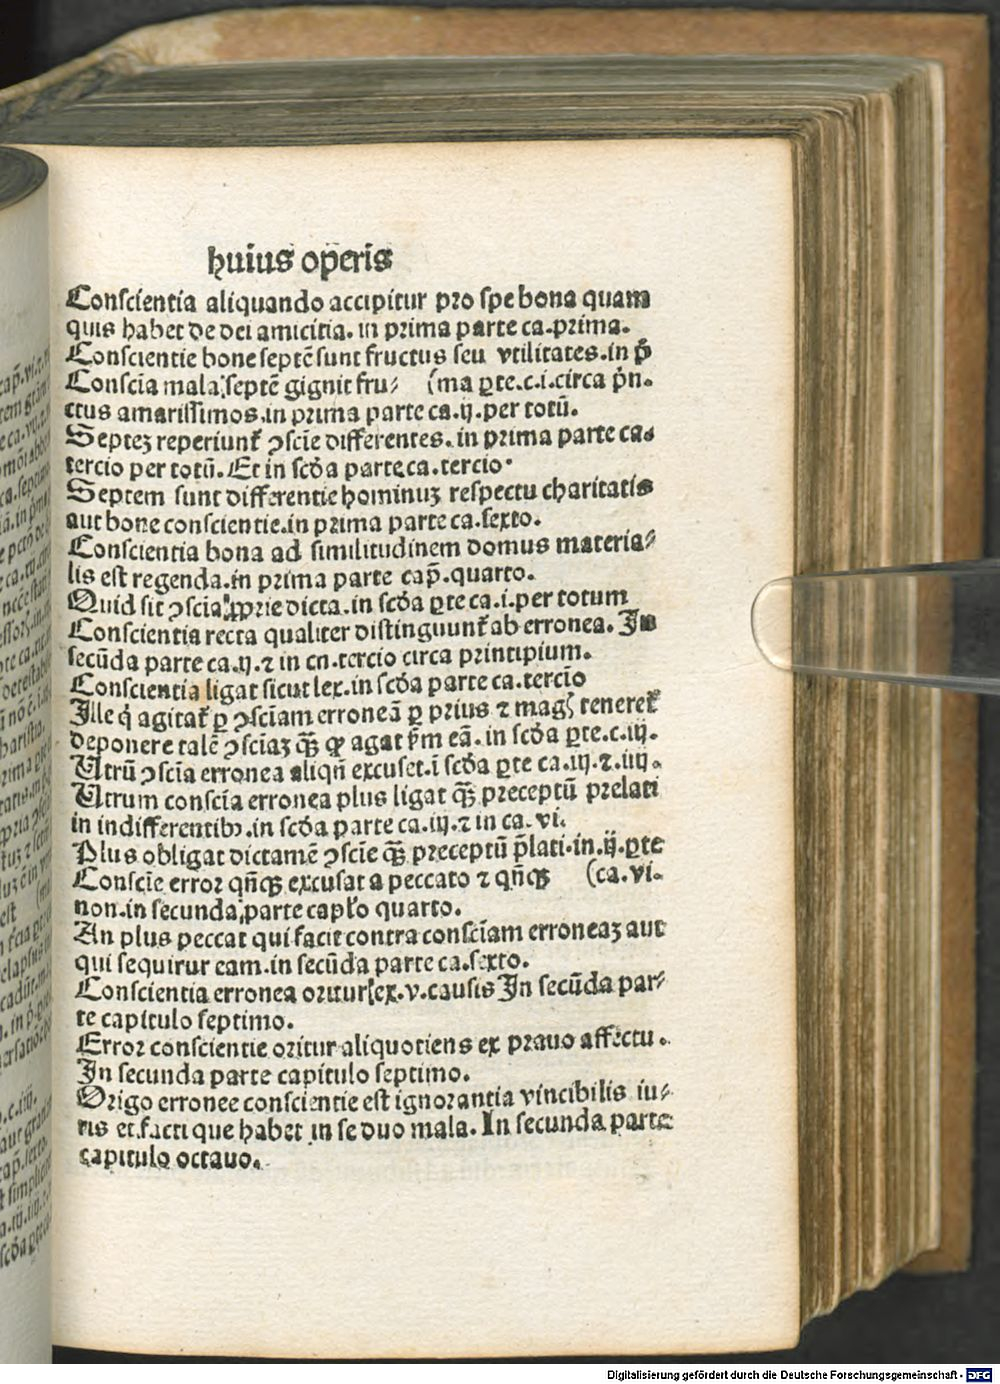 huius operis
Conscientia aliquando accipitur pro spe bona quam
quis habet de dei amicitia. in prima parte ca.prima.
Conscientie bone septē sunt fructus seu vtilitates.in p̄
Consciā mala septē gignit fru⸗ (ma ꝑte.c.i.circa p̄n.
ctus amarissimos.in prima parte ca.ij.per totū.
Septeꝫ reperiunt᷑ ꝯscīe differentes. in prima parte ca.
tercio per totū. Et in scd̄a parte ca.tercio.
Septem sunt differentie hominuꝫ respectu charitatis
aut bone conscientie.in prima parte ca.sexto.
Conscientia bona ad similitudinem domus materia⸗
lis est regenda.in prima parte cap̄.quarto.
Quid sit ꝯscīa ꝓprie dicta.in scd̄a ꝑte ca.i.per totum
Conscientia recta qualiter distinguunt᷑ ab erronea. In
secūda parte ca.ij.⁊ in cn.tercio circa principium.
Conscientia ligat sicut lex.in scd̄a parte ca.tercio
Ille q̇ agitat᷑ ꝑ ꝯscīam erroneā ꝑ prius ⁊ magꝭ teneret᷑
deponere talē ꝯscīaꝫ qꝫ̄ ꝙ agat fm̄ eā.in scd̄a ꝑte.c.iij.
Utrū ꝯscīa erronea aliqn̄ excuset.ī scd̄a ꝑte ca.iij.⁊.iiij.
Utrum conscīa erronea plus ligat qꝫ̄ preceptū prelati
in indifferentibꝫ.in scd̄a parte ca.iij.⁊ in ca.vi.
Plus obligat dictamē ꝯscīe qꝫ̄ preceptū p̄lati.in.ij.ꝑte
Conscīe error qn̄qꝫ excusat a peccato ⁊ qn̄qꝫ (ca.vi.
non.in secunda parte capł'o quarto.
An plus peccat qui facit contra conscīam erroneaꝫ aut
qui sequirur eam.in secūda parte ca.sexto.
Conscientia erronea oritur ex.v.causis In secūda par⸗
te capitulo septimo.
Error conscientie oritur aliquotiens ex prauo affectu.
In secunda parte capitulo septimo.
Origo erronee conscientie est ignorantia vincibilis iu⸗
ris et facti que habet in se duo mala. In secunda parte
capitulo octauo.
Digitalisierung gefördert durch die Deutsche Forschungsgemeinschaft - DFG